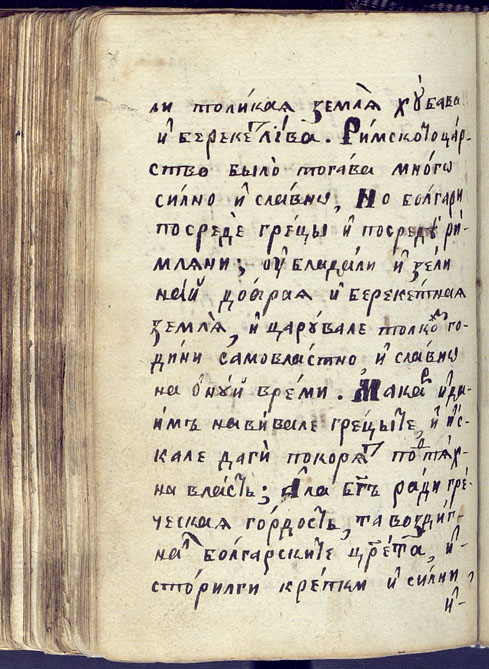 ли толикая земля̀ хꙋ́бава
и҆ берекетли́ва. Ри́мското ца́р-
ство было̀ тогава мно́гѡ
силно и҆ славнѡ, Но болгари
посреде гре́цы и҆ посредꙋ̀ ри́-
мляни; ѹ҆бладали и҆ зели
най до́брая и҆ берекетная
земля̀, и҆ царꙋвале толкова го-
дини самовластно и҆ славнѡ
на о҆нꙋй време. Мака и҆ да
имъ навивале грецыте, и҆ и҆с-
кале даги покорят по тѧх-
на власть; Ала бг҃ъ ради гре́-
ческая го́рдость, та воздиг-
нал бо́лгарските цр҃ета, и҆-
сторилги крепки и҆ силни,
и҆-